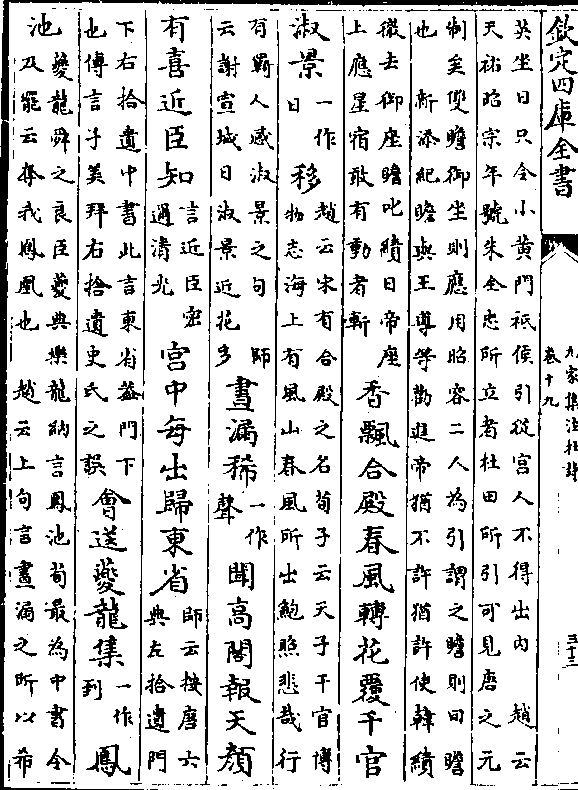 欽定四庫全書
九家集注杜詩
卷十九
三十三
英坐日只令小黄門祗候引從宮人不得出内　趙云
天祐昭宗年號朱全忠所立者杜田所引可見唐之元
制矣雙瞻御坐則應用昭容二人為引謂之瞻則回瞻
也　新添紀瞻與王導等勸進帝猶不許猶許使韓績
徹去御座瞻叱績曰帝座
上應星宿敢有動者斬
香飄合殿春風轉花覆千官
淑景
一作
日
移
趙云宋有合殿之名荀子云天子千官博
物志海上有風山春風所出鮑照悲哉行
有羇人感淑景之句　師
云謝宣城曰淑景近花多
晝漏稀
一作
聲
聞高閣報天顔
有喜近臣知
言近臣密
邇清光
宮中每出歸東省
師云按唐六
典左拾遺門
下右拾遺中書此言東省盖門下
也傳言子美拜右拾遺史氏之誤
會送夔龍集
一作
到
鳳
池
夔龍舜之良臣夔典樂龍納言鳳池荀最為中書令
及罷云奪我鳳凰也　趙云上句言晝漏之所以希